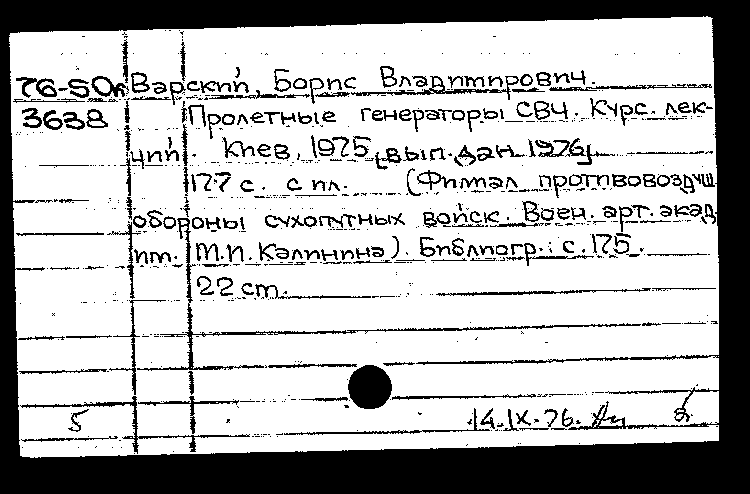 76-50л Варский, Борис Владимирович.
3638 Пролетные генераторы СВЧ. Курс. лек-
ций. Киев, 1975 [вып. дан. 1976]
177 с. с ил. (Филиал противовоздуш
обороны сухопутных войск. Воен. арт. акад
им. М.И. Калинина). Библиогр.: с. 175.
22 см.
5 14.IX.76.